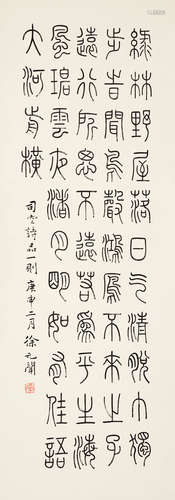 綠林野屋落日气清脫巾獨
步時聞鳥聲鴻鴈不來之子
遠行所思不遠若為平生海
風碧雲夜渚月明如有佳語
大河前橫
司空詩品一則 庚申二月 徐无聞